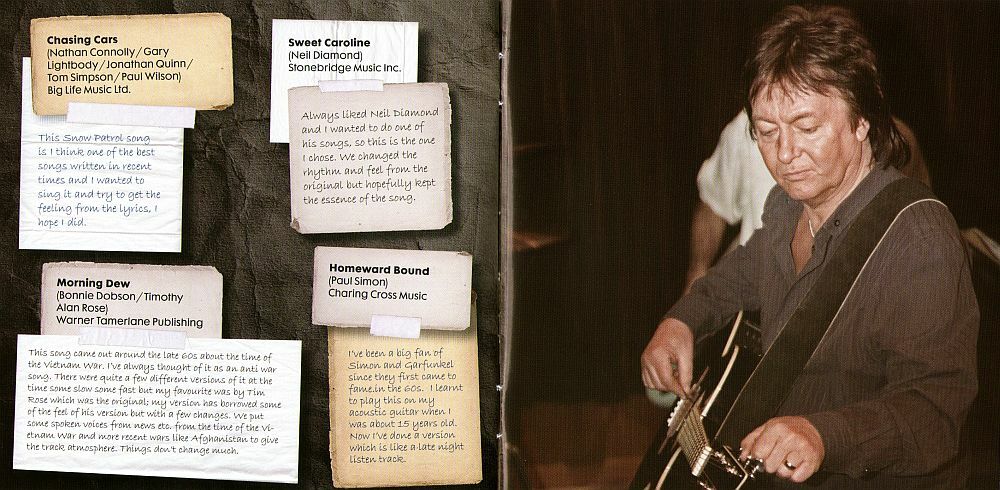 Chasing Cars
(Nathan Connolly/Gary
Lightbody/Jonathan Quinn/
Tom Simpson/Paul Wilson)
Big Life Music Ltd.
This Snow Patrol song
is I think one of the best
songs written in recent
times and I wanted to
sing it and try to get the
feeling from the lyrics, I
hope I did.
Sweet Caroline
(Neil Diamond)
Stonebridge Music Inc.
Always liked Neil Diamond
and I wanted to do one of
his songs, so this is the one
I chose. We changed the
rhythm and feel from the
original but hopefully kept
the essence of the song.
Morning Dew
(Bonnie Dobson/Timothy
Alan Rose)
Warner Tamerlane Publishing
This song came out around the late 60s about the time of
the Vietnam War. I've always thought of it as an anti war
song. There were quite a few different versions of it at the
time some slow some fast but my favourite was by Tim
Rose which was the original; my version has borrowed some
of the feel of his version but with a few changes. We put
some spoken voices from news etc. from the time of the Vi-
etnam War and more recent wars like Afghanistan to give
the track atmosphere. Things don't change much.
Homeward Bound
(Paul Simon)
Charing Cross Music
I've been a big fan of
Simon and Garfunkel
since they first came to
fame.in the 60s. I learnt
to play this on my
acoustic guitar when I
was about 15 years old.
Now I've done a version
which is like a late night
listen track.